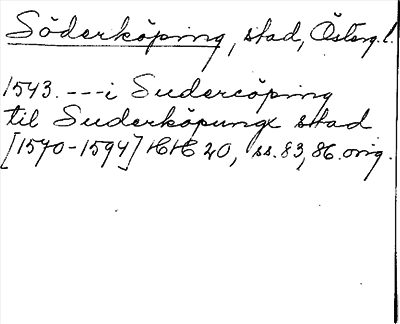 Söderköping, stad, Österg.l.
1543. --- i Sudercöping
til Suderköpungx stad
[1570-1594] HH 20, ss. 83, 86. orig.